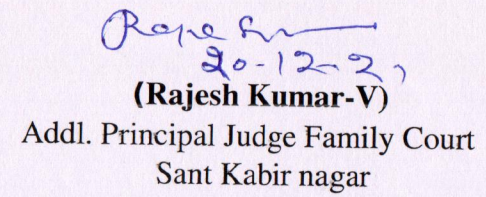 20-12-21
(Rajesh Kumar-V)
Addl. Principal Judge Family Court
Sant Kabir nagar